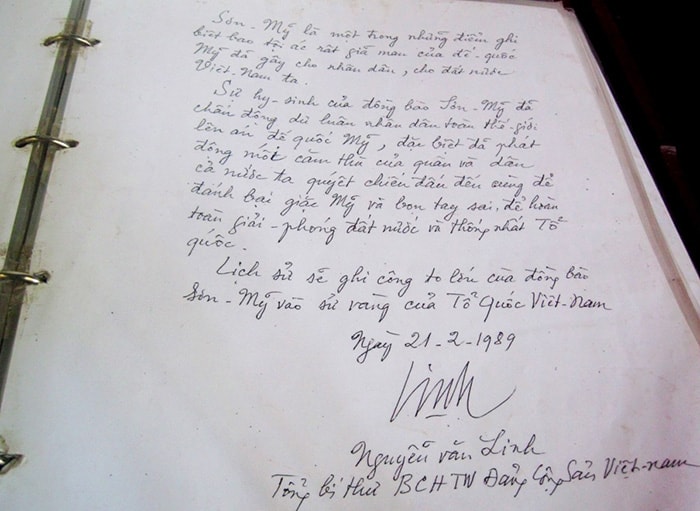 Sơn-Mỹ là một trong những điểm ghi
biết bao tội ác rất giã man của đế-quốc
Mỹ đã gây cho nhân dân, cho đất nước
Việt-Nam ta.
Sự hy-sinh của đồng bào Sơn-Mỹ đã
chấn động dư luận nhân dân toàn thế-giới
lên án đế quốc Mỹ, đặc biệt đã phát
động mối căm thù của quân và dân
cả nước ta quyết chiến đấu đến cùng để
đánh bại giặc Mỹ và bọn tay sai, để hoàn
toàn giải-phóng đất nước và thống nhất Tổ
quốc.
Lịch sử sẽ ghi công to lớn của đồng bào
Sơn-Mỹ vào sử vàng của Tổ Quốc Việt-Nam
Ngày 21-2-1989
Linh
Nguyễn văn Linh
Tổng bí thư BCHTW Đảng Cộng Sản Việt-nam